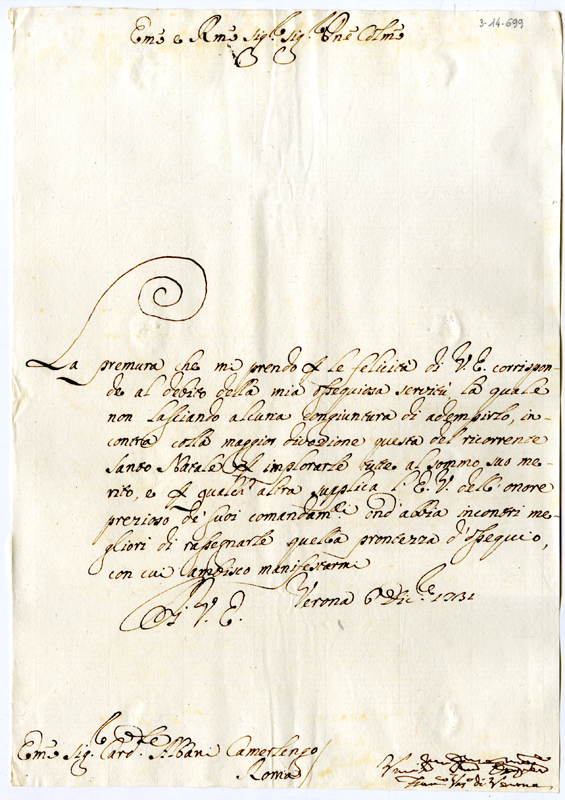 3-14-699
Em̃o e Rm̃o Sig.re Sig.re Pñe Colm̃o
La premura che mi prendo p le felicità di V. E. corrispon-
de al debito della mia ossequiosa servitù la quale
non lasciando alcuna congiuntura di adempirlo, in-
contra colla maggior divozione questa del ricorrente
Santo Natale p implorarle tutte al sommo suo me-
rito, e p qualch' altra supplica l' E. V. dell' onore
prezioso de' suoi comandam.ti ond' abbia incontri me-
gliori di rassegnarle quella prontezza d' ossequio,
con cui ambisco manifestarmi
Di V. E. Verona 6 Dic.e 1731
Em̃o Sig.r Card.le Albani Camerlengo
Roma
Fran.o Ves.o di Verona